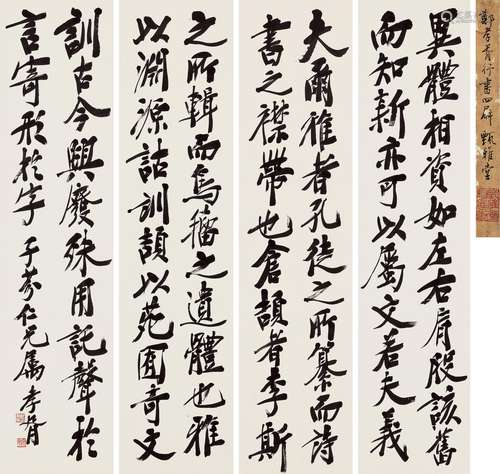 鄭孝胥行書四屏 甄雅堂
異體相資如左右肩股該舊
而知新亦可以屬文若夫義
夫爾雅者孔徒之所纂而詩
書之襟帶也倉頡者李斯
之所輯而鳥籀之遺體也雅
以淵源詁訓頡以苑囿奇文
訓古今興廢殊用託聲於
言寄形於字 子芬仁兄屬 孝胥